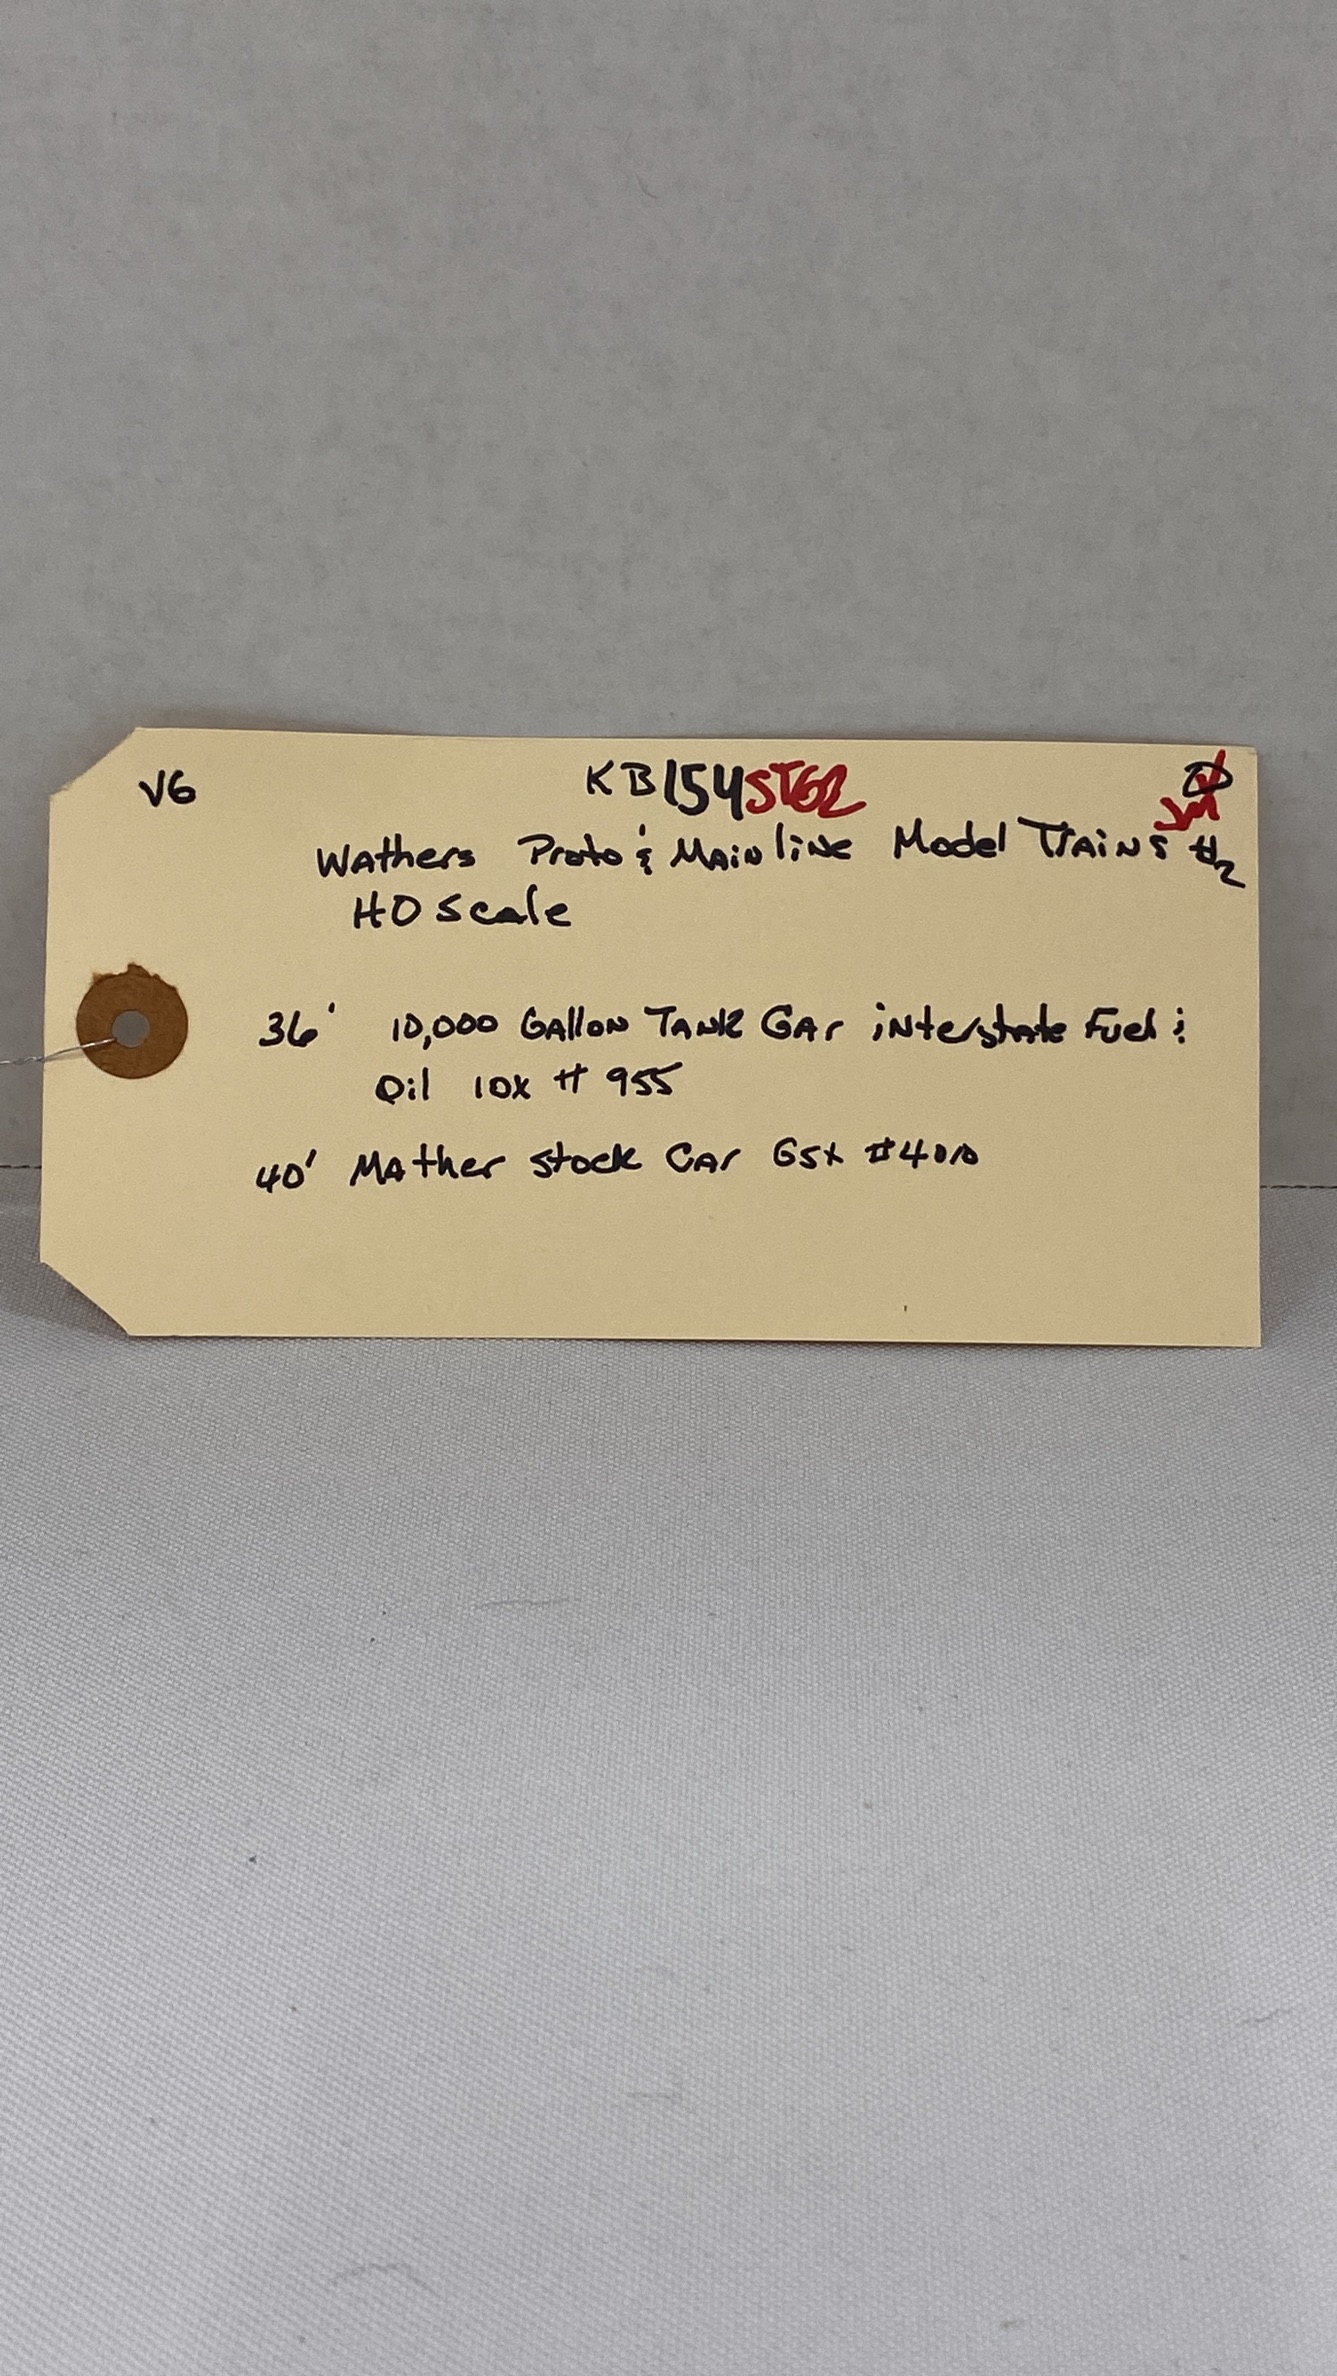 V6 KB154STG2
Wathers Proto & Mainline Model Trains #2
HO Scale
36' 10,000 Gallon Tank Car interstate Fuel &
Oil IOX # 955
40' Mather Stock Car GSX #4010